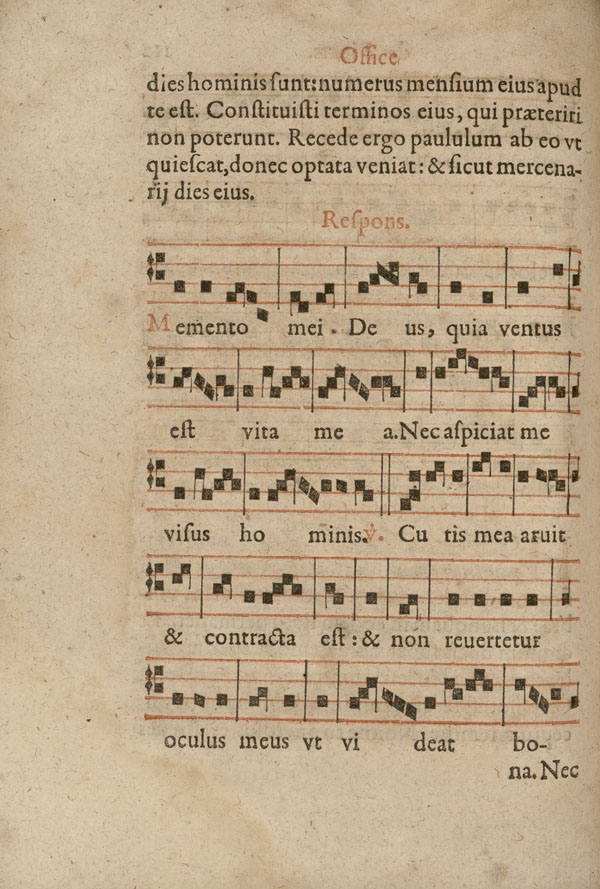 Office
dies hominis ſunt: numerus menſium eius apud
te eſt. Conſtituiſti terminos eius, qui præteriri
non poterunt. Recede ergo paululum ab eo vt
quieſcat, donec optata veniat: & ſicut mercena-
rij dies eius.
Reſpons.
Memento mei. De us, quia ventus
eſt vita me a. Nec aſpiciat me
viſus ho minis. ℣. Cu tis mea aruit
& contracta eſt: & non reuertetur
oculus meus vt vi deat bo-
na. Nec